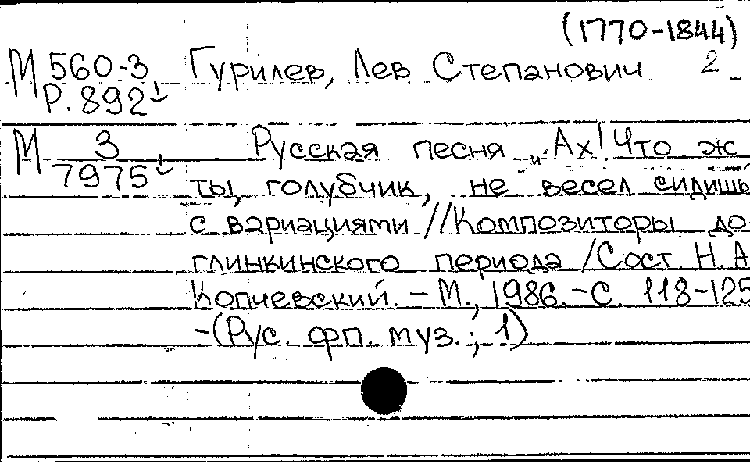 (1770-1844)
М 560-3 Гурилев, Лев Степанович 2
Р. 892
М 3 Русская песня „Ах! Что ж
7975 ты, голубчик, не весел сидишь
с вариациями // Композиторы до
глинкинского периода / Сост. Н. А.
Копчевский. – М., 1986. – С. 118-125
– (Рус. фп. муз.; 1)